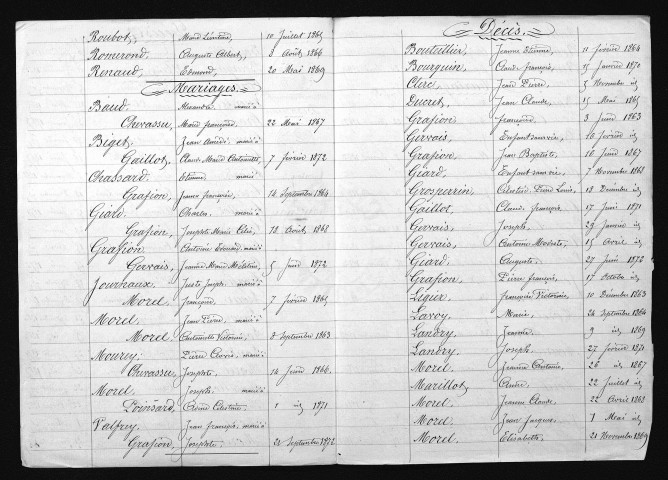 Roubot, Marie Léontine 10 Juillet 1865
Romerond, Auguste Albert, 3 Août 1866
Renaud, Edmond, 20 Mai 1869
Mariages.
Baud. Alexandre marié à
Chevassu, Marie françoise, 22 Mai 1867
Biget Jean Aimé marié à
Gaillot, Claude Marie Antoinette, 7 février 1872
Chassard Etienne marié à
Grapion, Jeanne françoise, 14 Septembre 1864
Giard Charles marié à
Grapion, Josephte Marie 18 Août 1868
Grapion Antoine Edouard, marié à
Gervais, Jeanne Marie 5 Juin 1872
Journaux. Juste Joseph marié à
Morel françoise, 7 février 1865
Morel. Jean Pierre marié à
Morel Antoinette Victorine, 8 Septembre 1863
Mourey. Pierre Clovis marié à
Chevassu, Josephte, 14 Juin 1866
Morel. Joseph marié à
Poinsard, Célestine 1 id 1871
Valfrey. Jean François marié à
Grapion, Josephte 24 Septembre 1872
Décès.
Bouteillier, Jeanne Etienne, 11 février 1864
Bourguin, Claude françois, 15 Janvier 1870
Clerc Jean Pierre, 5 Novembre id
Ducret, Jean Claude, 15 Mai 1865
Grapion françoise, 3 Juin 1863
Gervais, Enfant sans vie, 16 février id
Grapion, Jean Baptiste 16 Juin 1867
Giard, Enfant sans vie, 7 Novembre 1868
Grosperrin, Célestin Louis, 18 Décembre id
Gaillot, Claude françois, 17 Juin 1871
Gervais, Joseph, 29 Janvier id
Gervais, Antoine Modeste, 15 Avril id
Giard, Auguste, 27 Juin 1872
Grapion, Pierre françois, 17 Octobre id
Ligier. françoise Victorine, 10 Décembre 1863
Lavoy. Marie, 24 Septembre 1864
Landry. Jeannette 9 id, 1869
Landry. Joseph, 27 février 1871
Morel. Jeanne Antoine, 26 id, 1867
Marillot, André, 22 Juillet id
Morel. Jeanne Claude, 22 Avril 1868
Morel. Jean Jacques, 1 Mai id
Morel. Elisabeth, 21 Novembre 1869